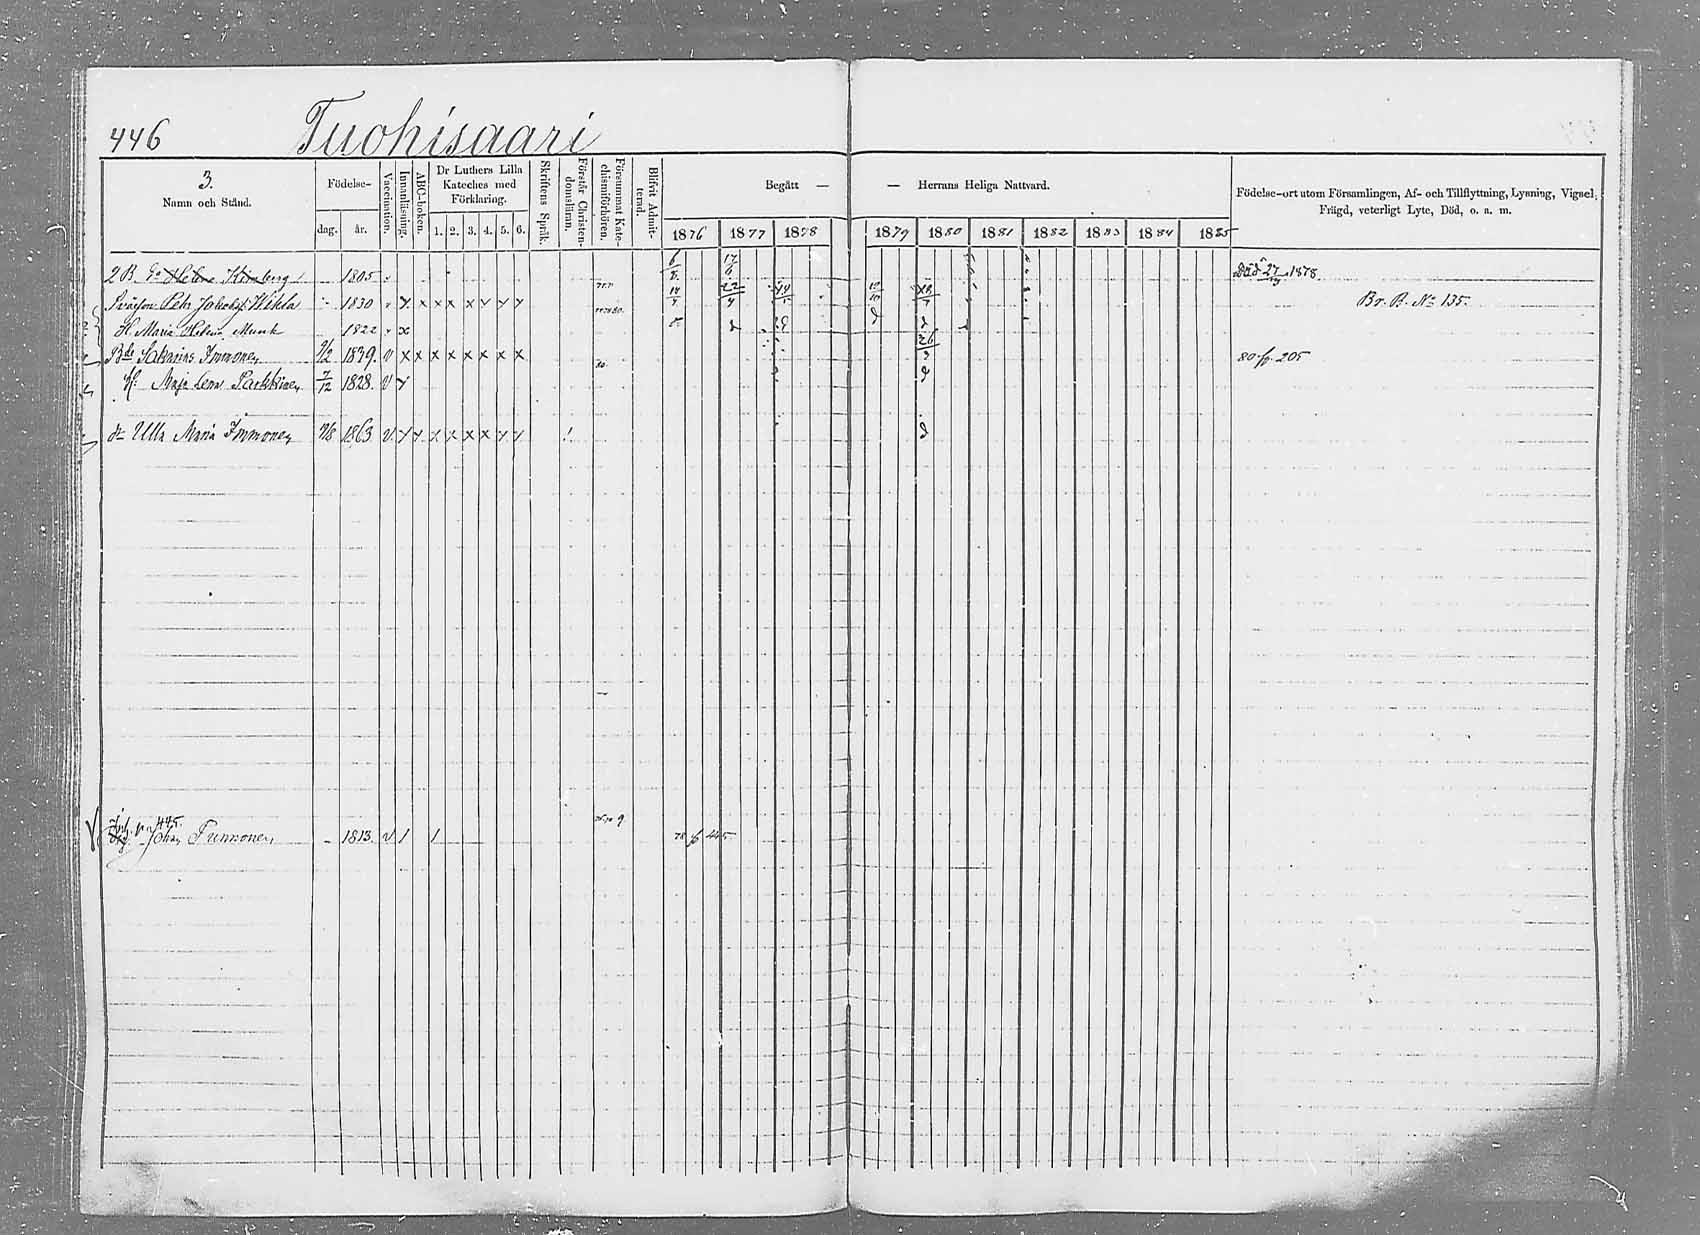 446 Tuohisaari
3.
Namn och Stånd.
Födelse-
dag.
år.
Vaccination.
Innanläsning.
ABC-boken.
Dr Luthers Lilla
Kateches med
Förklaring.
1. 2. 3. 4. 5. 6.
Skriftens Språk.
Förstår Christen-
domsläran.
Försummat Kate-
chismiförhören.
Blifvit Admit-
terad.
Begått —
— Herrans Heliga Nattvard.
1876 1877 1878 1879 1880 1881 1882 1883 1884 1885
Födelse-ort utom Församlingen, Af- och Tillflyttning, Lysning, Vigsel,
Frägd, veterligt Lyte, Död, o. a. m.
Helena 1805 Död 27 1878
Svärson Petr Jakobsf. Wikla 1830 v x x x x x x x x Br. B. No 135.
H. Maria Helena Munk 1822 v x
Sakarias Immonen 9/2 1839. v x x x x x x x x 80 fr. 205
H. Maja Lena Parkkinen 7/12 1828. v x
dr Ulla Maria Immonen 1863 v x x x x x x x x
445
Johan 1813. v 1 1 78 fr 445